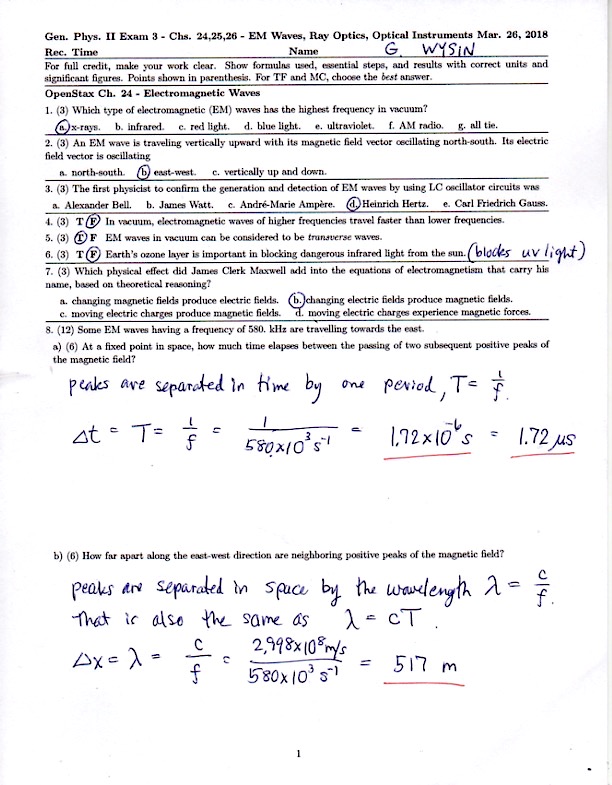 Gen. Phys. II Exam 3 - Chs. 24,25,26 - EM Waves, Ray Optics, Optical Instruments Mar. 26, 2018
Rec. Time Name G. WYSIN
For full credit, make your work clear. Show formulas used, essential steps, and results with correct units and
significant figures. Points shown in parenthesis. For TF and MC, choose the best answer.
OpenStax Ch. 24 - Electromagnetic Waves
1. (3) Which type of electromagnetic (EM) waves has the highest frequency in vacuum?
a. x-rays. b. infrared. c. red light. d. blue light. e. ultraviolet. f. AM radio. g. all tie.
2. (3) An EM wave is traveling vertically upward with its magnetic field vector oscillating north-south. Its electric
field vector is oscillating
a. north-south. b. east-west. c. vertically up and down.
3. (3) The first physicist to confirm the generation and detection of EM waves by using LC oscillator circuits was
a. Alexander Bell. b. James Watt. c. André-Marie Ampère. d. Heinrich Hertz. e. Carl Friedrich Gauss.
4. (3) T F In vacuum, electromagnetic waves of higher frequencies travel faster than lower frequencies.
5. (3) T F EM waves in vacuum can be considered to be transverse waves.
6. (3) T F Earth's ozone layer is important in blocking dangerous infrared light from the sun. (blocks uv light)
7. (3) Which physical effect did James Clerk Maxwell add into the equations of electromagnetism that carry his
name, based on theoretical reasoning?
a. changing magnetic fields produce electric fields. b. changing electric fields produce magnetic fields.
c. moving electric charges produce magnetic fields. d. moving electric charges experience magnetic forces.
8. (12) Some EM waves having a frequency of 580. kHz are travelling towards the east.
a) (6) At a fixed point in space, how much time elapses between the passing of two subsequent positive peaks of
the magnetic field?
peaks are separated in time by one period, T = 1/f.
Δt = T = 1/f = 1/(580×10³ s⁻¹) = 1.72×10⁻⁶ s = 1.72 μs
b) (6) How far apart along the east-west direction are neighboring positive peaks of the magnetic field?
peaks are separated in space by the wavelength λ = c/f.
That is also the same as λ = cT.
Δx = λ = c/f = (2.998×10⁸ m/s)/(580×10³ s⁻¹) = 517 m
1